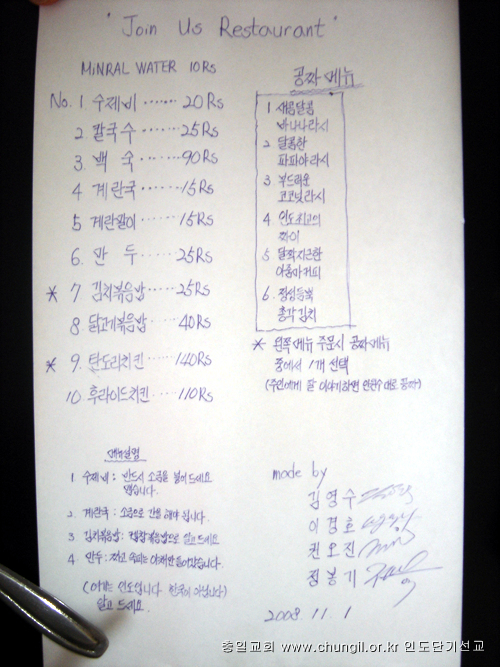 " Join Us Restaurant "
MiNRAL WATER 10Rs
No. 1. 수제비 ······ 20Rs
2. 칼국수 ······ 25Rs
3. 백 숙 ······ 90Rs
4 계란국 ······ 15Rs
5 계란말이 ····· 15Rs
6. 만 두 ······ 25Rs
* 7 김치볶음밥 ····· 25Rs
8 닭고기볶음밥 ···· 40Rs
* 9. 탄도리치킨 ····· 140Rs
10 후라이드치킨 ···· 110Rs
공짜메뉴
1 새콤달콤
바나나라시
2 달콤한
파파야라시
3 부드러운
코코넛라시
4 인도최고의
짜이
5 달짝지근한
아줌마커피
6. 정성듬뿍
총각김치
* 왼쪽메뉴 주문시 공짜메뉴
중에서 1개 선택
(주인에게 잘 이야기하면 공짜)
메뉴설명
1 수제비 : 반드시 소금을 넣어드세요
맹습니다.
2. 계란국 : 소금으로 간을 해야 합니다.
3 김치볶음밥 : 알고 드세요
4 만두 :
(여기는 인도입니다 한국이 아닙니다)
알고 드세요.
made by
김영수
이경호
권오진
정봉기
2008. 11. 1
충일교회 www.chungil.or.kr 인도단기선교